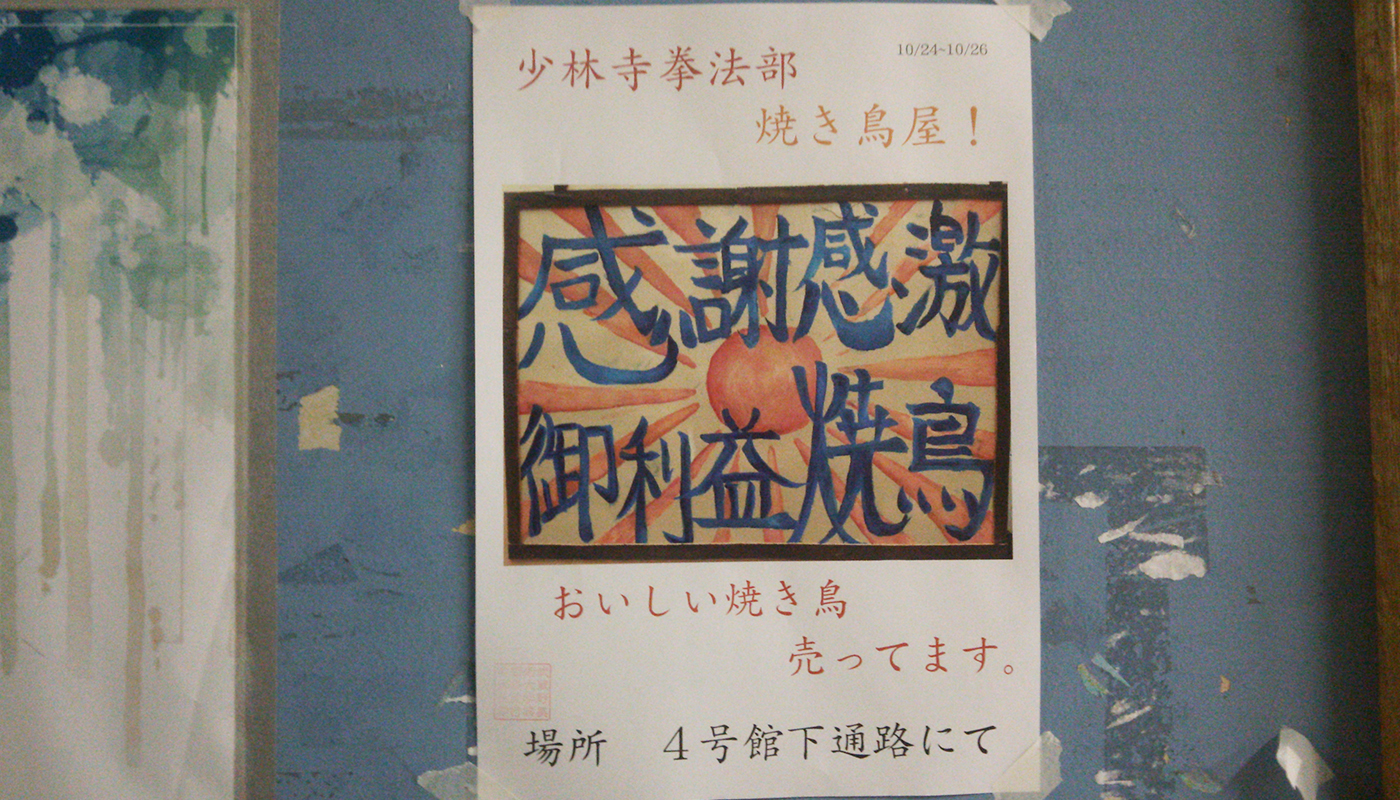 少林寺拳法部
10/24~10/26
焼き鳥屋！
感謝感激
御利益焼鳥
おいしい焼き鳥
売ってます。
場所　４号館下通路にて